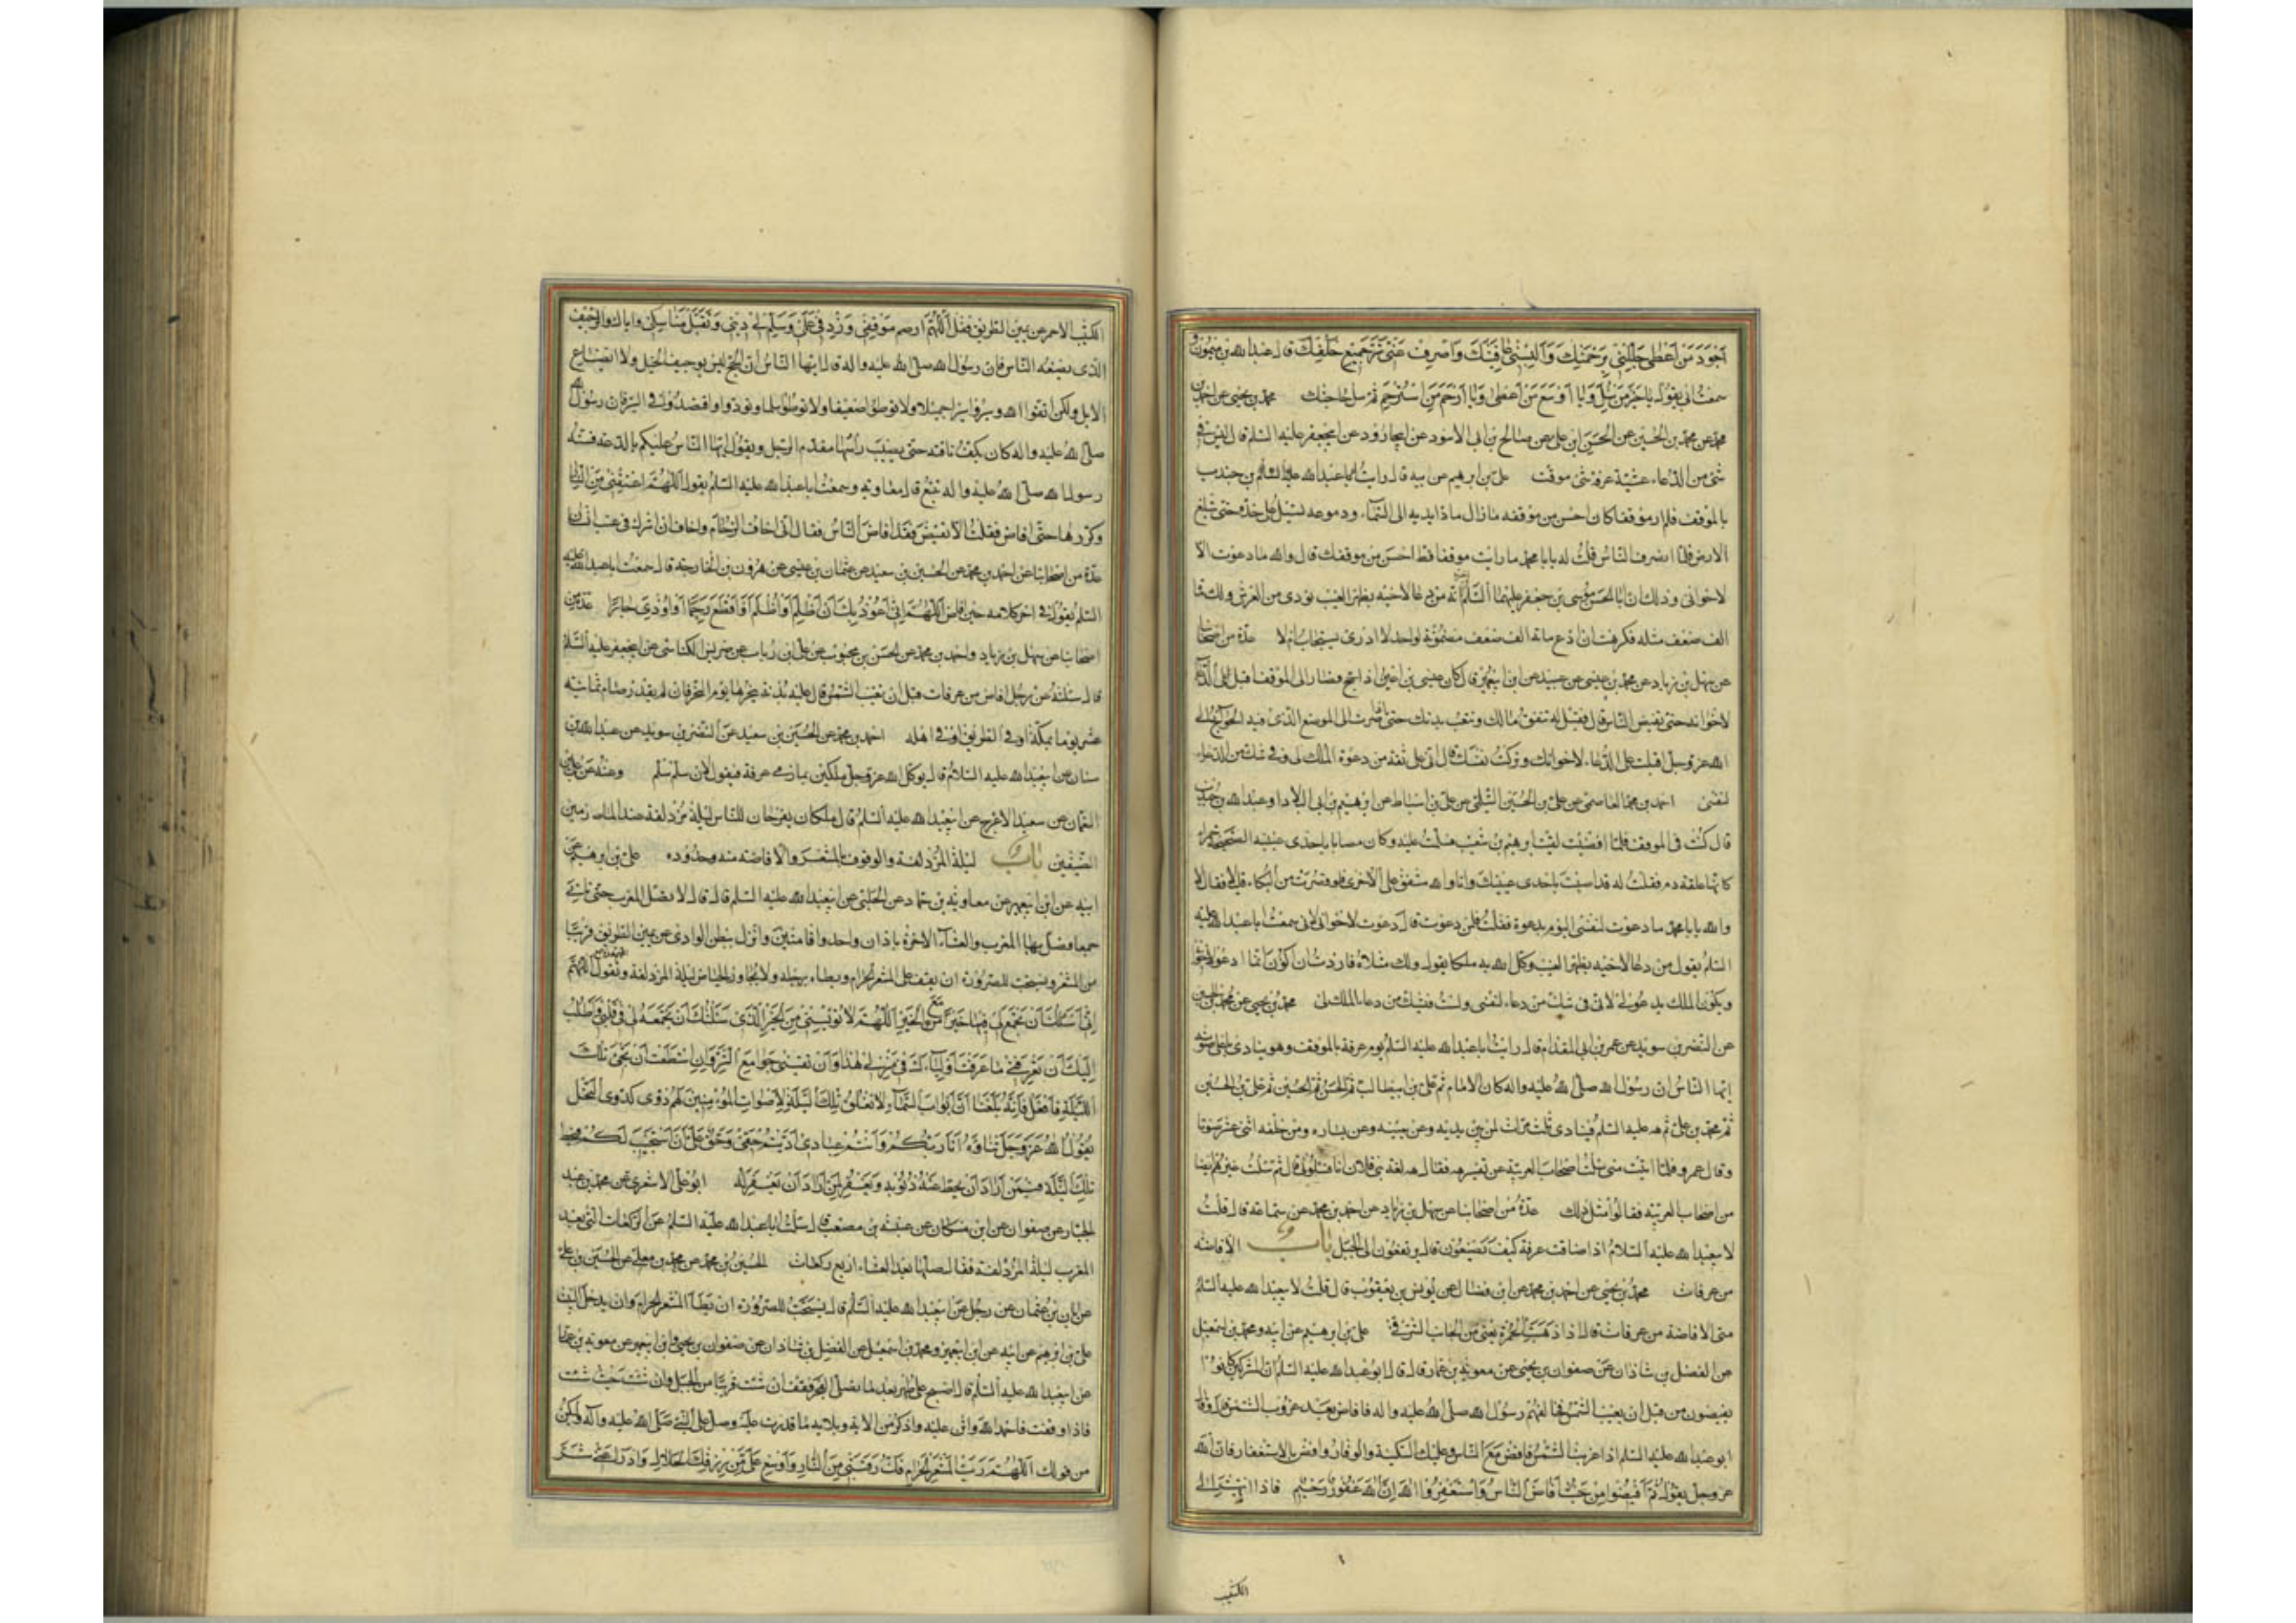 أَجْوَدَ مَنْ أَعْطى جَلِّلْنِي بِرَحْمَتِكَ وَأَلْبِسْنِي عَافِيَتَكَ وَاصْرِفْ عَنِّي شَرَّ جَمِيعِ خَلْقِكَ قال عبدالله بن ميمون
سمعت ابي يقول يا خير من سئل ويا اوسع من اعطى ويا ارحم من استرحم ثم سل حاجتك محمد بن يحيى عن احمد بن
محمد عن محمد بن الحسين عن الحسن ابن علي عن صالح بن ابي الاسود عن ابي الجارود عن ابي جعفر عليه السلم قال ليس في
شئ من الدعاء عشية عرفة شئ موقت علي بن ابرهيم عن ابيه قال رايت بن جندب
بالموقف فلم ار موقفا كان احسن من موقفه ما زال مادا يديه الى السماء ودموعه تسيل على خده حتى تبلغ
الارض فلما انصرف الناس قلت له يا با محمد ما رايت موقفا قط احسن من موقفك قال والله ما دعوت الا
لاخواني وذلك ان ابا الحسن موسى بن جعفر عليهما السلم انه من دعا لاخيه بظهر الغيب نودي من العرش ولك مائة
الف ضعف مثله فكرهت ان ادع مائة الف ضعف مضمونة لواحد لا ادري يستجاب ام لا عدة من اصحابنا
عن سهل بن زياد عن محمد بن عيسى بن عبيد عن ابن ابي عمير قال كان عيسى بن اعين اذا حج فصار الى الموقف اقبل على الدعاء
لاخوانه حتى يفيض الناس قال فقيل له تنفق مالك وتتعب بدنك حتى اذا صرت الى الموضع الذي فيه الحوائج الى
الله عز وجل اقبلت على الدعاء لاخوانك وتركت نفسك قال اني على ثقة من دعوة الملك لي وفي شك من الدعاء
لنفسي احمد بن محمد العاصمي عن علي بن الحسين السلمي عن علي بن اسباط عن ابرهيم بن ابي البلاد او عبدالله بن جندب
قال كنت في الموقف فلما افضت لقيت ابرهيم بن شعيب فسلمت عليه وكان مصابا باحدى عينيه واذا عينه الصحيحة حمراء
كانها علقة دم فقلت له قد اصبت باحدى عينيك وانا والله مشفق على الاخرى فلو قصرت من البكاء قليلا فقال لا
والله يا با محمد ما دعوت لنفسي اليوم بدعوة فقلت فلمن دعوت قال دعوت لاخواني لاني سمعت ابا عبدالله عليه
السلم يقول من دعا لاخيه بظهر الغيب وكل الله به ملكا يقول ولك مثلاه فاردت ان اكون انما ادعو لاخواني
ويكون الملك يدعو لي لاني في شك من دعاء لنفسي ولست في شك من دعاء الملك لي محمد بن يحيى عن محمد بن الحسين
عن النضر بن سويد عن عمرو بن ابي المقدام قال رايت ابا عبدالله عليه السلم يوم عرفة بالموقف وهو ينادي باعلى صوته
ايها الناس ان رسول الله صلى الله عليه واله كان الامام ثم علي بن ابيطالب ثم الحسن ثم الحسين ثم علي بن الحسين
ثم محمد بن علي ثم هه عليه السلم فينادي ثلث مرات لمن بين يديه وعن يمينه وعن يساره ومن خلفه اثنى عشر صوتا
وقال عمرو فلما اتيت منى سئلت اصحاب العربية عن تفسير هه فقال هه لغة بني فلان انا فسئلوني قال ثم سئلت غيرهم ايضا
من اصحاب العربية فقالوا مثل ذلك عدة من اصحابنا عن سهل بن زياد عن احمد بن محمد عن سماعة قال قلت
لابيعبدالله عليه السلام اذا ضاقت عرفة كيف تصنعون قال يرتفعون الى الجبل باب الافاضة
من عرفات محمد بن يحيى عن احمد بن محمد عن ابن فضال عن يونس بن يعقوب قال قلت لابيعبدالله عليه السلم
متى الافاضة من عرفات قال اذا ذهبت الحمرة يعني من الجانب الشرقي علي بن ابرهيم عن ابيه ومحمد بن اسمعيل
عن الفضل بن شاذان عن صفوان بن يحيى عن معوية بن عمار قال قال ابوعبدالله عليه السلم ان المشركين كانوا
يفيضون من قبل ان يغيب الشمس فخالفهم رسول الله صلى الله عليه واله فافاض بعد غروب الشمس قال وقال
ابوعبدالله عليه السلم اذا غربت الشمس فافض مع الناس وعليك السكينة والوقار وافض بالاستغفار فان الله
عز وجل يقول ثُمَّ أَفِيضُوا مِنْ حَيْثُ أَفَاضَ النَّاسُ وَاسْتَغْفِرُوا اللهَ إِنَّ اللهَ غَفُورٌ رَحِيمٌ فاذا انتهيت الى
الكثيب
الكثيب الاحمر عن يمين الطريق فقل اللهم ارحم موقفي وزد في علمي وسلم لي ديني وتقبل مناسكي واياك والوجيف
الذي يصنعه الناس فان رسول الله صلى الله عليه واله قال ايها الناس ان الحج ليس بوجيف الخيل ولا ايضاع
الابل ولكن اتقوا الله وسيروا سيرا جميلا ولا توطئوا ضعيفا ولا توطئوا مسلما وتؤدوا واقصدوا في السير فان رسول الله
صلى الله عليه واله كان يكف ناقته حتى يصيب راسها مقدم الرحل ويقول ايها الناس عليكم بالدعة فسنة
رسول الله صلى الله عليه واله تتبع قال معاوية وسمعت ابا عبدالله عليه السلم يقول اللهم اعتقني من النار
وكررها حتى افاض فقلت الا تفيض فقد افاض الناس فقال اني اخاف الزحام واخاف ان اشرك في عنت انسان
عدة من اصحابنا عن احمد بن محمد عن الحسين بن سعيد عن عثمان بن عيسى عن هرون بن الخارجة قال سمعت ابا عبدالله عليه
السلم يقول في اخر كلامه حين افاض اللهم اني اعوذ بك ان اظلم او اظلم او اقطع رحما او اوذي جارا عدة من
اصحابنا عن سهل بن زياد واحمد بن محمد عن الحسن بن محبوب عن علي بن رباب عن ضريس الكناسي عن ابيجعفر عليه السلم
قال سئلته عن رجل افاض من عرفات قبل ان تغيب الشمس قال عليه بدنة ينحرها يوم النحر فان لم يقدر صام ثمانية
عشر يوما بمكة او في الطريق او في اهله احمد بن محمد عن الحسين بن سعيد عن النضر بن سويد عن عبدالله بن
سنان عن ابيعبدالله عليه السلام قال يوكل الله عز وجل ملكين بمازمي عرفة فيقولان سلم سلم وعنه عن علي بن
النعمان عن سعيد الاعرج عن ابيعبدالله عليه السلم قال ملكان يفرجان للناس ليلة مزدلفة عند المازمين
الضيقين باب ليلة المزدلفة والوقوف بالمشعر والافاضة منه وحدوده علي بن ابرهيم عن
ابيه عن ابن ابيعمير عن معاوية بن عمار وحماد عن الحلبي عن ابيعبدالله عليه السلم قال قال لا تصل المغرب حتى تاتي
جمعا فصل بها المغرب والعشاء الاخرة باذان واحد واقامتين وانزل ببطن الوادي عن يمين الطريق قريبا
من المشعر ويستحب للصرورة ان يقف على المشعر الحرام ويطاه برجله ولا يجاوز الحياض ليلة المزدلفة وتقول اللهم
اني اسئلك ان تجمع لي فيها جوامع الخير اللهم لا تويسني من الخير الذي سئلتك ان تجمعه لي في قلبي واطلب
اليك ان تعرفني ما عرفت اولياءك في منزلي هذا وان تقيني جوامع الشر وان استطعت ان تحيي تلك
الليلة فافعل فانه بلغنا ان ابواب السماء لا تغلق تلك الليلة لاصوات المؤمنين لهم دوي كدوي النحل
يقول الله عز وجل ثناؤه انا ربكم وانتم عبادي اديتم حقي وحق علي ان استجيب لكم فيحط
تلك الليلة عمن اراد ان يحط عنه ذنوبه ويغفر لمن اراد ان يغفر له ابو علي الاشعري عن محمد بن عبد
الجبار عن صفوان عن ابن مسكان عن عنبسة بن مصعب قال سئلت ابا عبدالله عليه السلم عن الركعات التي بعد
المغرب ليلة المزدلفة فقال صلها بعد العشاء اربع ركعات الحسين بن محمد عن محمد بن معلى عن الحسين بن علي
عن ابان بن عثمان عن رجل عن ابيعبدالله عليه السلم قال يستحب للصرورة ان تطا المشعر الحرام وان يدخل البيت
علي بن ابرهيم عن ابيه عن ابن ابيعمير ومحمد بن اسمعيل عن الفضل بن شاذان عن صفوان بن يحيى وابن ابيعمير عن معوية بن عمار
عن ابيعبدالله عليه السلم قال اصبح على طهر بعد ما تصلي الفجر فقف ان شئت قريبا من الجبل وان شئت حيث شئت
فاذا وقفت فاحمد الله واثن عليه واذكر من الائه وبلائه ما قدرت عليه وصل على النبي صلى الله عليه واله وليكن
من قولك اللهم رب المشعر الحرام فك رقبتي من النار واوسع علي من رزقك الحلال وادرا عني شر